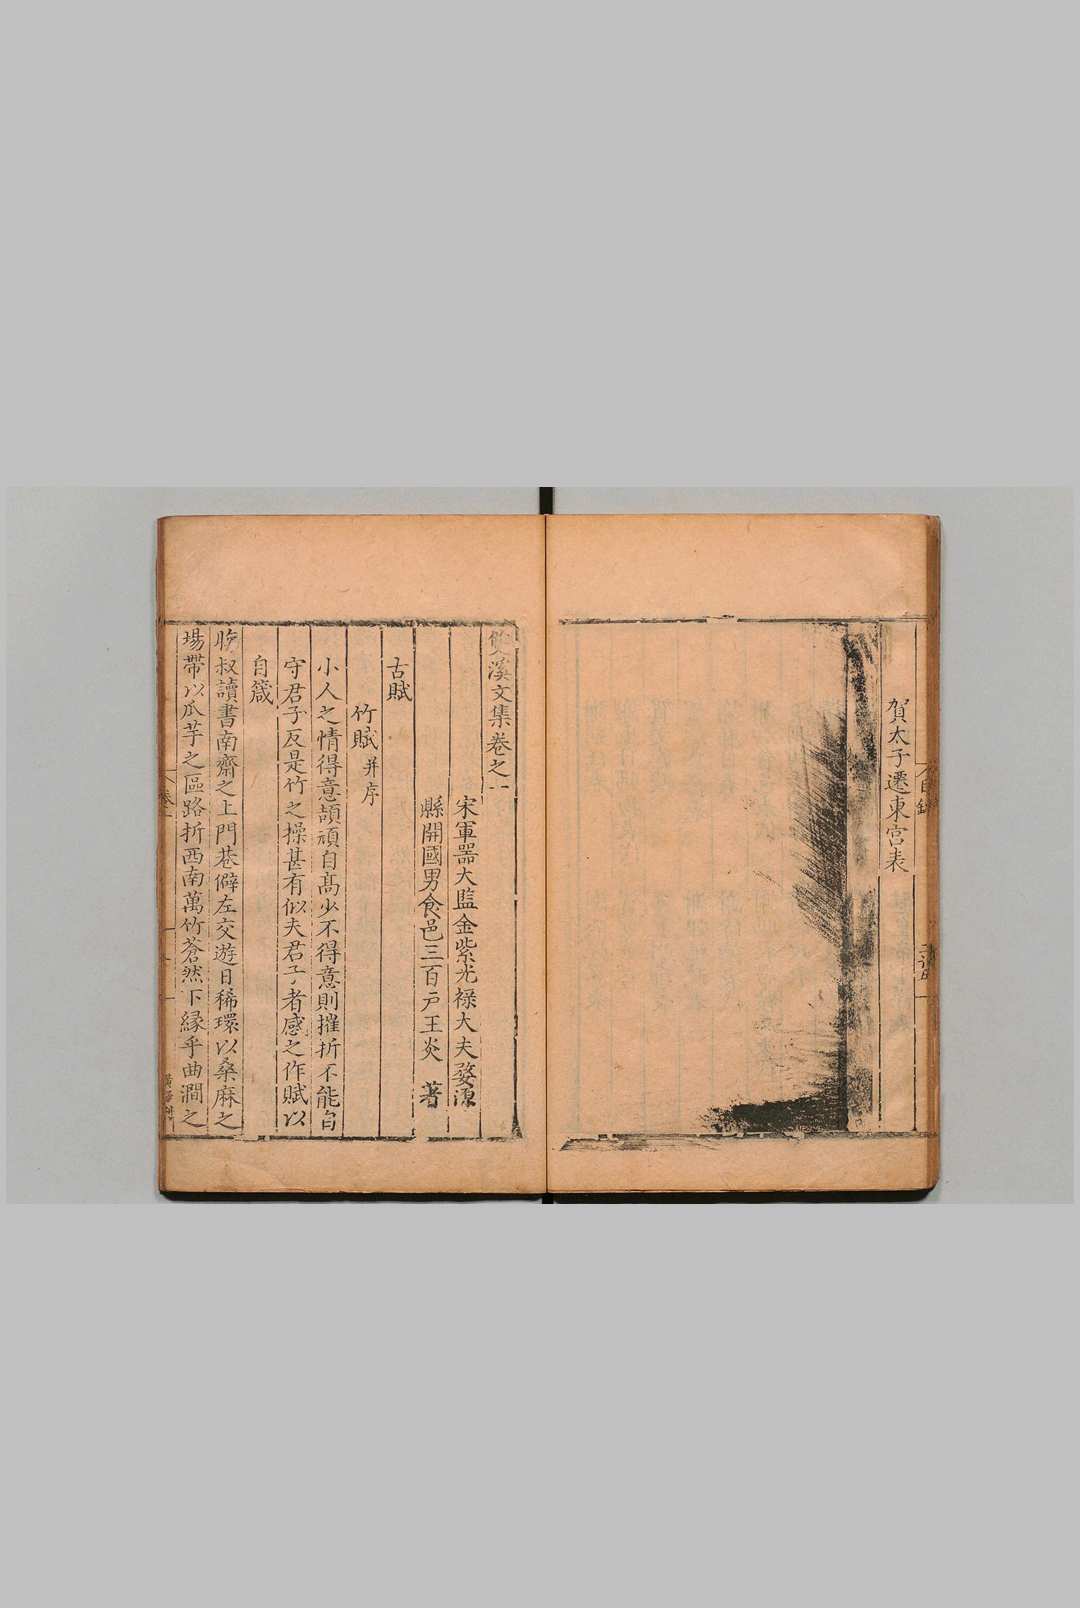 賀太子遷東宮表
雙溪文集卷之一
宋軍器大監金紫光祿大夫婺源
縣開國男食邑三百戶王炎 著
古賦
竹賦 并序
小人之情得意頡頏自髙少不得意則摧折不能自
守君子反是竹之操甚有似夫君子者感之作賦以
自箴
晚叔讀書南齋之上門巷僻左交遊日稀環以桑麻之
場帶以瓜芋之區路折西南萬竹蒼然下緣乎曲澗之